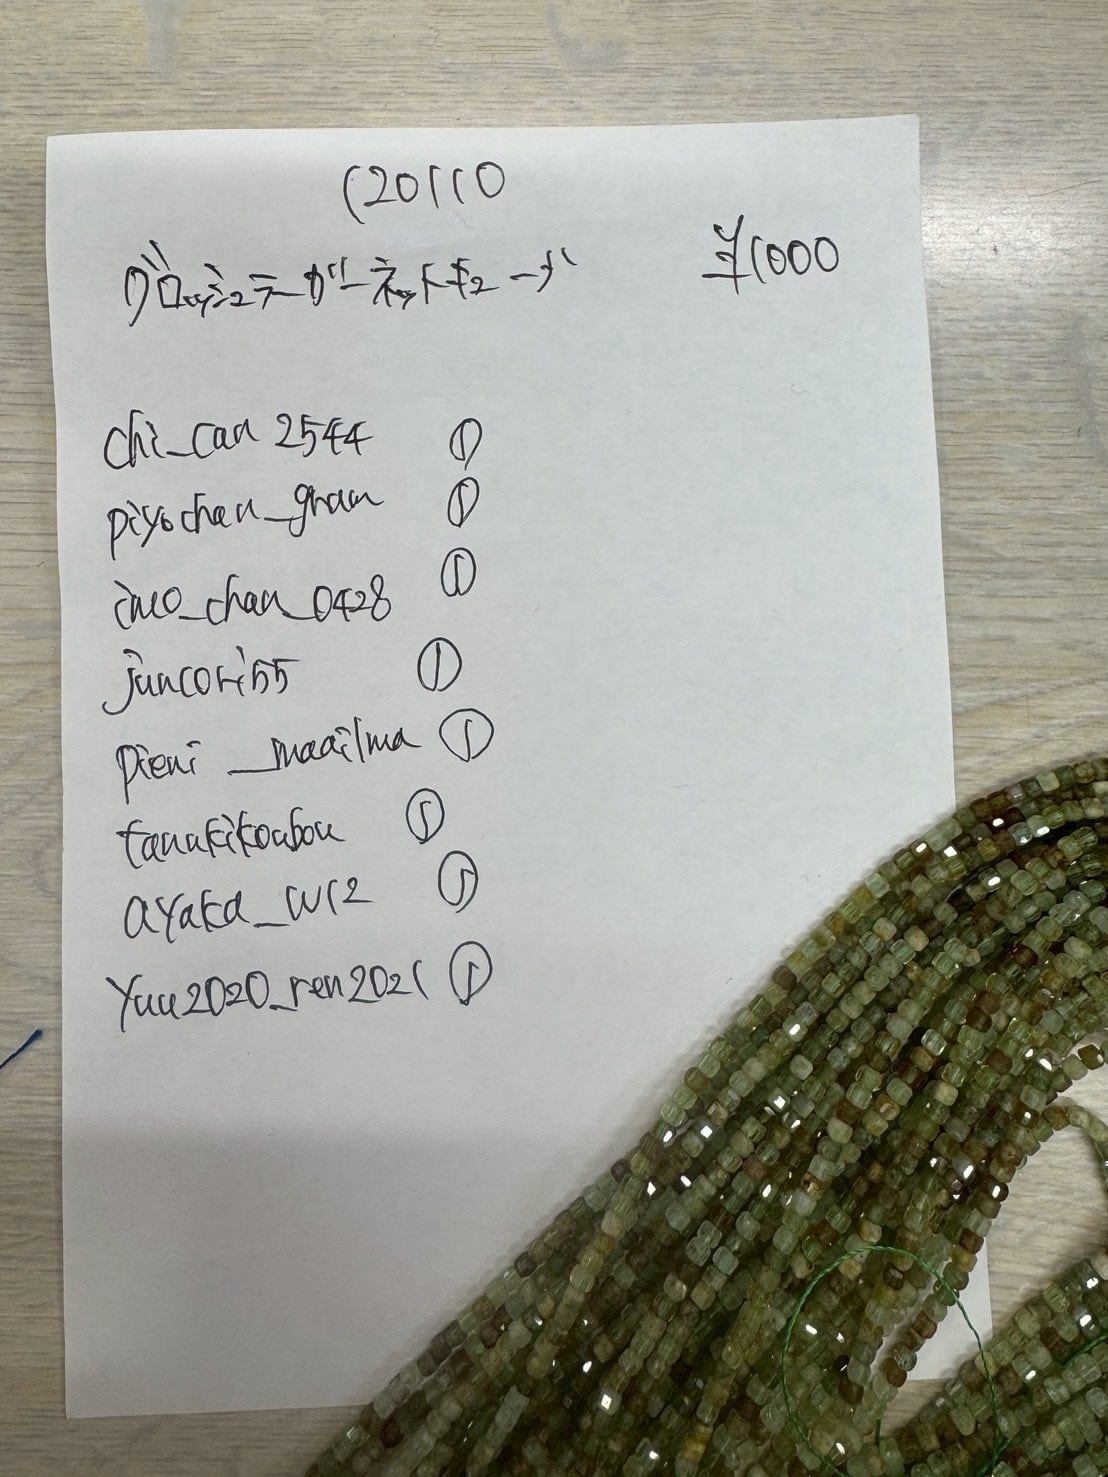 120110
グロッシュラーガーネットキューブ ¥1000
chi_can2544 ①
piyochan_gram ①
ineo_chan_0428 ①
juncori55 ①
pieni_maailma ①
tanukikoubou ①
ayaka_w12 ①
yuu2020_ren2021 ①